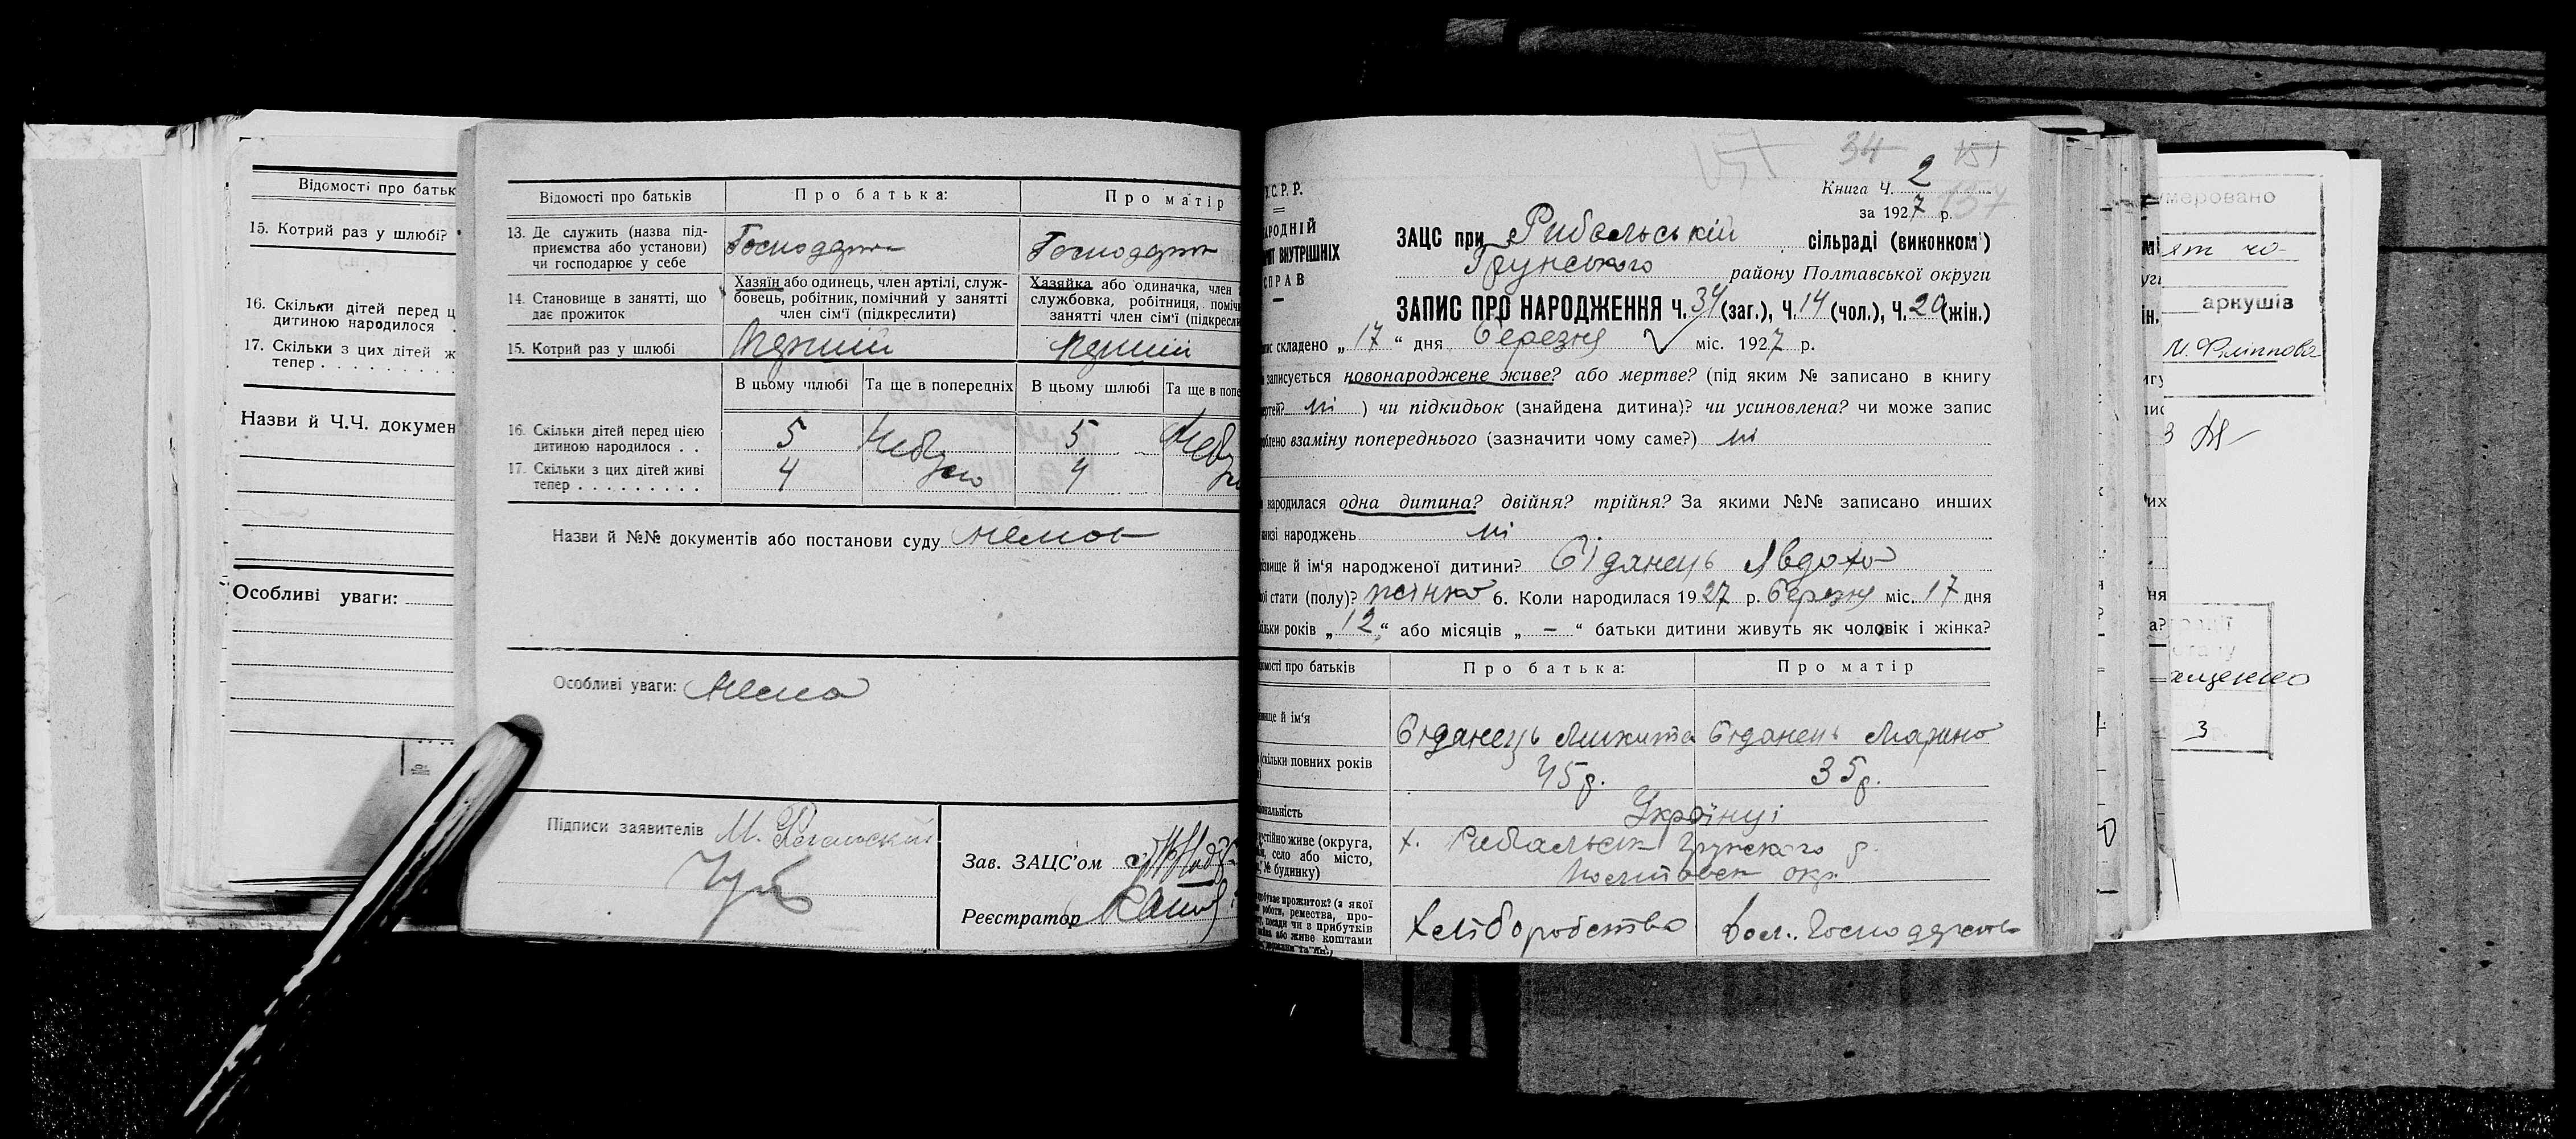 Відомості про батьк
15. Котрий раз у шлюбі?
16. Скільки дітей перед ц
дитиною народилося .
17. Скільки з цих дітей ж
тепер . . . . . . . . .
Назви й Ч.Ч. докумен
Особливі уваги:
Відомості про батьків
Про батька:
Про матір
13. Де служить (назва під-
приємства або установи)
чи господарює у себе
14. Становище в занятті, що
дає прожиток
Хазяїн або одинець, член артілі, служ-
бовець, робітник, помічний у занятті
член сім'ї (підкреслити)
Хазяйка або одиначка, член
службовка, робітниця, поміч
занятті член сім'ї (підкресли
15. Котрий раз у шлюбі
Перший
Перший
В цьому шлюбі Та ще в попередніх В цьому шлюбі Та ще в попе
16. Скільки дітей перед цією
дитиною народилося . .
5
5
17. Скільки з цих дітей живі
тепер . . . . . . . . .
4
4
Назви й №№ документів або постанови суду немов
Особливі уваги: нема
Підписи заявителів М.
Зав. ЗАЦС'ом
Реєстратор
34 151
137
.С.Р.Р.
АРОДНІЙ
ВНУТРІШНІХ
СПРАВ
Книга Ч. 2
за 1927 р.
ЗАЦС при Рибальській сільраді (виконком)
Грунського району Полтавської округи
ЗАПИС ПРО НАРОДЖЕННЯ Ч. 34 (заг.), Ч. 14 (чол.), Ч. 20 (жін.)
складено „ 17 “ дня березня міс. 1927 р.
записується новонароджене живе? або мертве? (під яким № записано в книгу
ні ) чи підкидьок (знайдена дитина)? чи усиновлена? чи може запис
взаміну попереднього (зазначити чому саме?) ні
народилася одна дитина? двійня? трійня? За якими №№ записано инших
народжень ні
й ім'я народженої дитини? Біданець Явдоха
стати (полу)? жінка 6. Коли народилася 1927 р. березня міс. 17 дня
років „ 12 “ або місяців „ – “ батьки дитини живуть як чоловік і жінка?
про батьків
Про батька:
Про матір
й ім'я
Біданець Микита
Біданець Марина
скільки повних років
45 р.
35 р.
Українці
живе (округа,
село або місто,
№ будинку)
х. Рибальськ Грунского р.
Полтавськ окр.
прожиток? (з якої
роботи, ремества, про-
посади чи з прибутків
або живе коштами
Хліборобство
Дом. Господарство
умеровано
аркушів
М. Філіппова
3